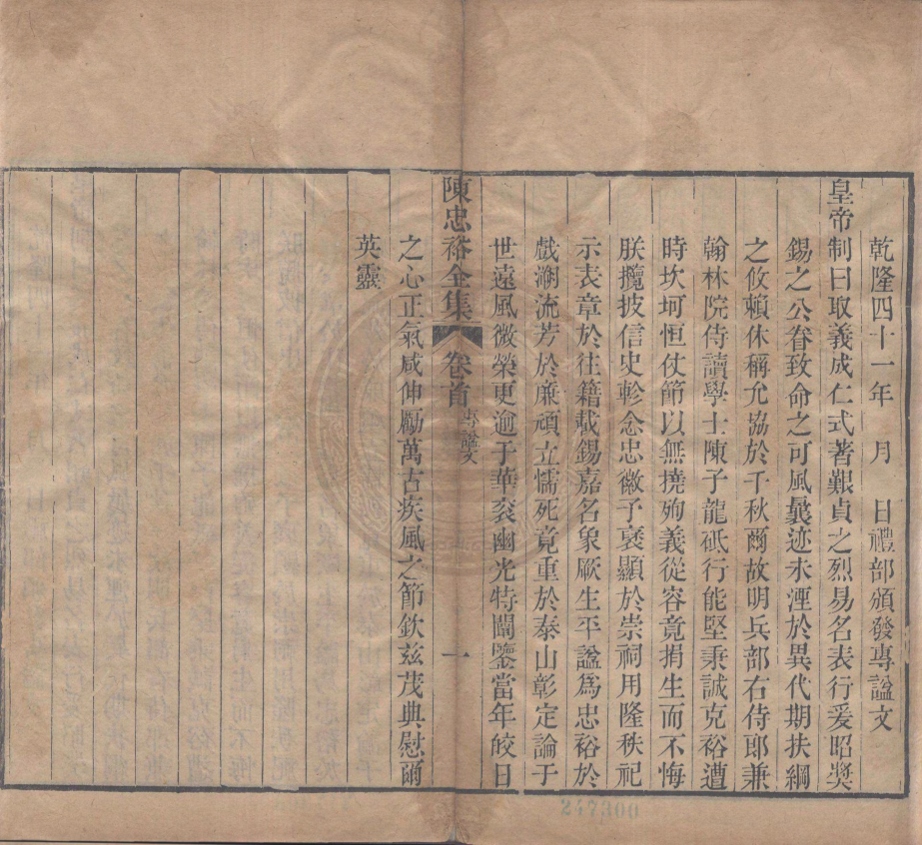 乾隆四十一年　月　日禮部頒發專諡文
皇帝制曰取義成仁式著艱貞之烈易名表行爰昭獎
錫之公眷致命之可風曩迹未湮於異代期扶綱
之攸賴休稱允協於千秋爾故明兵部右侍郎兼
翰林院侍讀學士陳子龍砥行能堅秉誠克裕遭
時坎坷恒仗節以無撓殉義從容竟捐生而不悔
朕攬披信史軫念忠徽予襃顯於崇祠用隆秩祀
示表章於往籍載錫嘉名象厥生平諡爲忠裕於
戲溯流芳於廉頑立懦死竟重於泰山彰定論于
世遠風微榮更逾于華袞幽光特闡鑒當年皎日
陳忠裕全集　卷首　專諡文　一
之心正氣咸伸勵萬古疾風之節欽兹茂典慰爾
英靈
247300